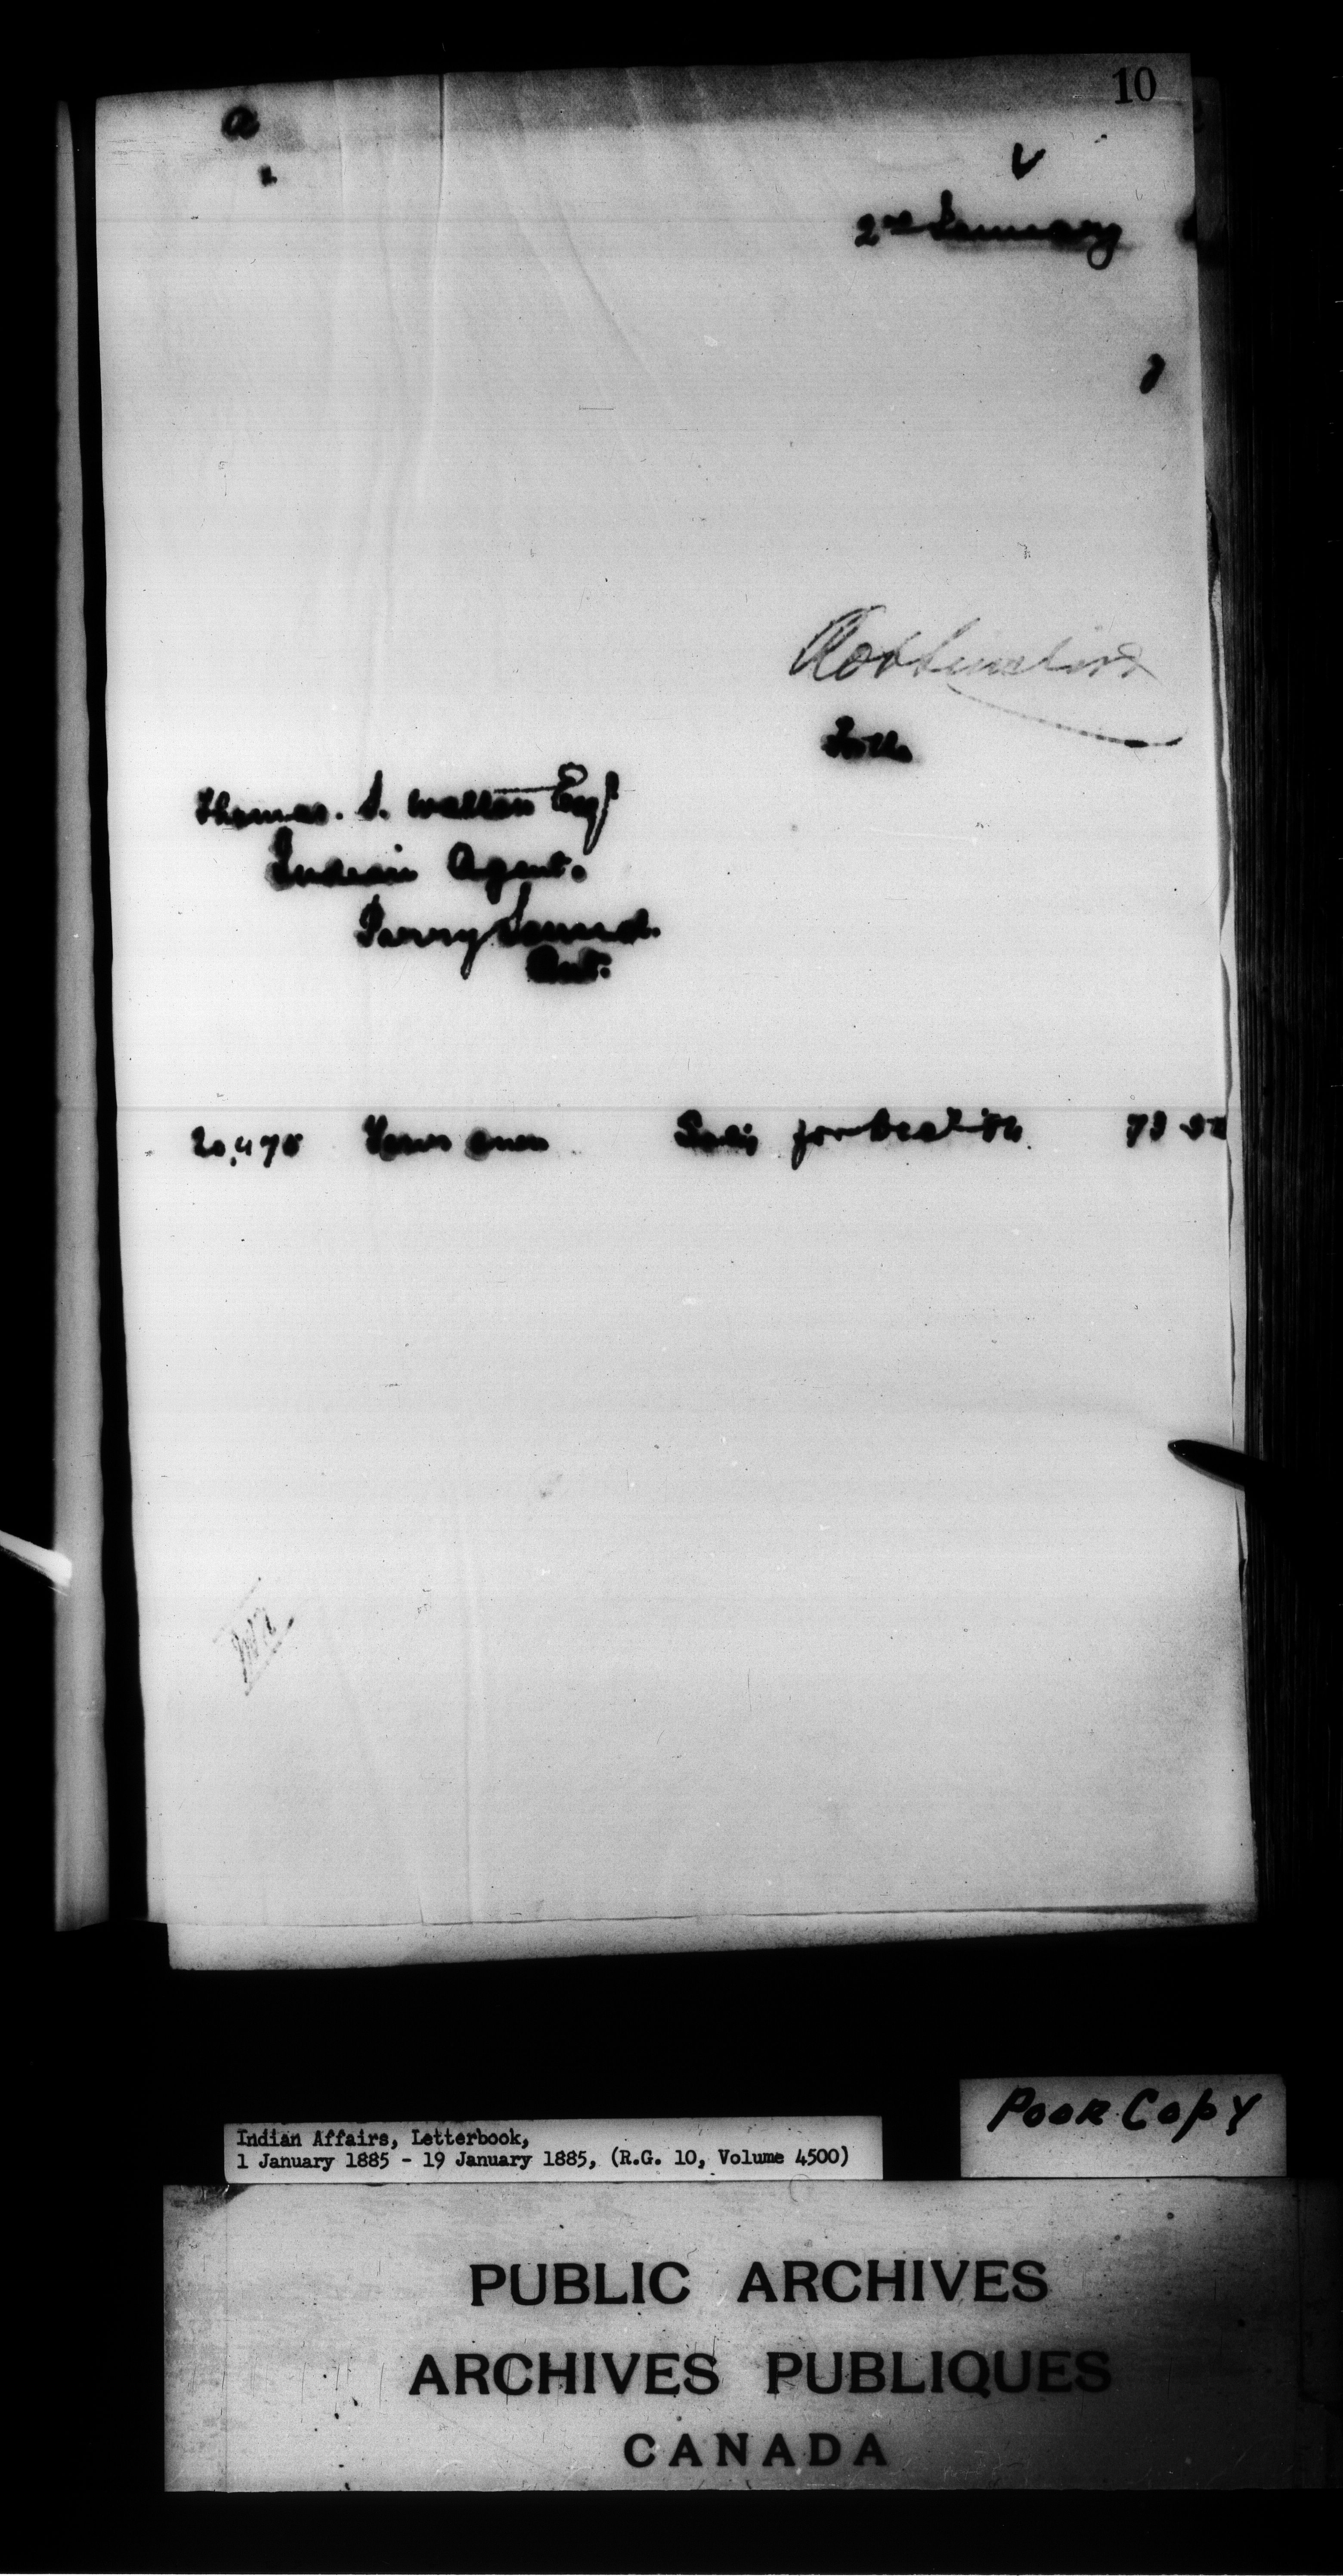 10
2nd January
Thomas. S. Walton Esqr
Indian Agent.
Parry Sound.
Ont.
20,475 Your own for Dec
Indian Affairs, Letterbook,
1 January 1885 - 19 January 1885, (R.G. 10, Volume 4500)
Poor Copy
PUBLIC ARCHIVES
ARCHIVES PUBLIQUES
CANADA